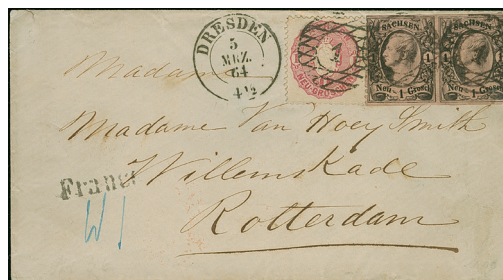 DRESDEN
5
MRZ.
64
4½
SACHSEN
1 1
Neu 1 Grosch
SACHSEN
1
Neu 1 Grosch
Madame
Madame Van Hoey Smith
Franco
Willemskade
Rotterdam